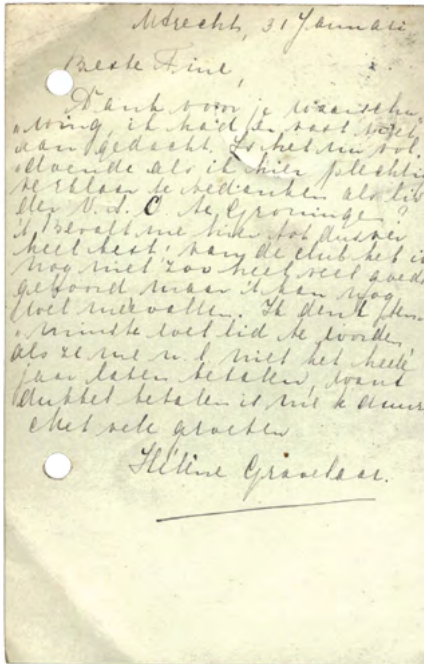 Utrecht, 31 Januari
Beste Fine,
Dank voor je waarschu-
„wing, ik had er vast niet
aan gedacht. Is het nu vol-
„doende als ik hier plechtig
verklaar te bedanken als lid
der V. d. C. te Groningen?
't Bevalt me hier tot dusver
heel best; van de club heb ik
nog niet zoo heel veel goeds
gehoord maar 't kan nog
wel meevallen. Ik denk ten-
„minste wel lid te worden,
als ze me n.l. niet het heele
jaar laten betalen, want
dubbel betalen is me te duur
Met vele groeten
Hélène Gravelaar.